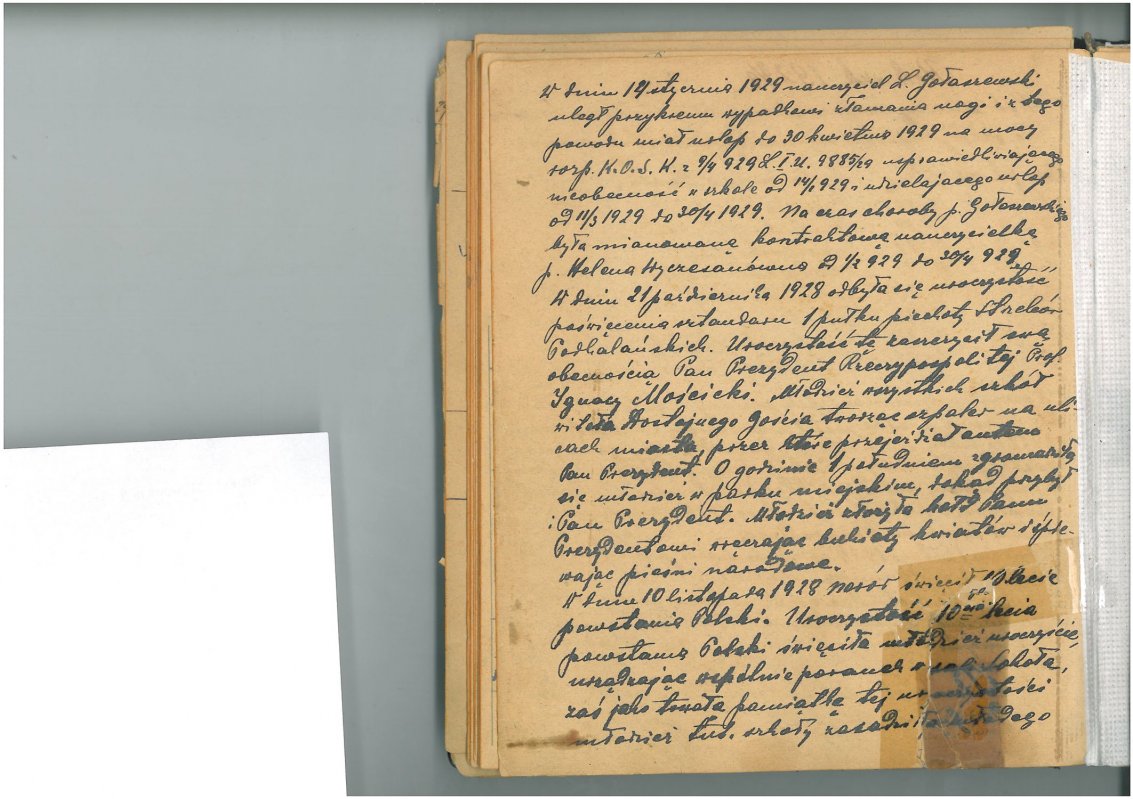 W dniu 14 stycznia 1929 nauczyciel L. Gołaszewski
uległ przykremu wypadkowi złamania nogi i z tego
powodu miał urlop do 30 kwietnia 1929 na mocy
rozp. K.O.S.K. z 9/4 929 L.I.U. 9885/29 usprawiedliwiającego
nieobecność w szkole od 14/1 929 i udzielającego urlop
od 11/3 1929 do 30/4 1929. Na czas choroby p. Gołaszewskiego
była mianowaną kontraktową nauczycielką
p. Helena Wyczesanówna od 1/2 929 do 30/4 929.
W dniu 21 października 1928 odbyła się uroczystość
poświęcenia sztandaru 1 pułku piechoty Strzelców
Podhalańskich. Uroczystość tę zaszczycił swą
obecnością Pan Prezydent Rzeczypospolitej Prof.
Ignacy Mościcki. Młodzież wszystkich szkół
witała Dostojnego Gościa tworząc szpaler na uli-
cach miasta, przez które przejeżdżał autem
Pan Prezydent. O godzinie 1 południem zgromadziła
się młodzież w parku miejskim, dokąd przybył
i Pan Prezydent. Młodzież złożyła hołd Panu
Prezydentowi wręczając bukiety kwiatów i śpie-
wając pieśni narodowe.
W dniu 10 listopada 1928 Naród święcił 10 lecie
powstania Polski. Uroczystość 10 lecia
powstania Polski święciła młodzież uroczyście,
urządzając wspólnie poranek w sali Sokoła,
zaś jako trwałą pamiątkę tej uroczystości
młodzież tut. szkoły zasadziła